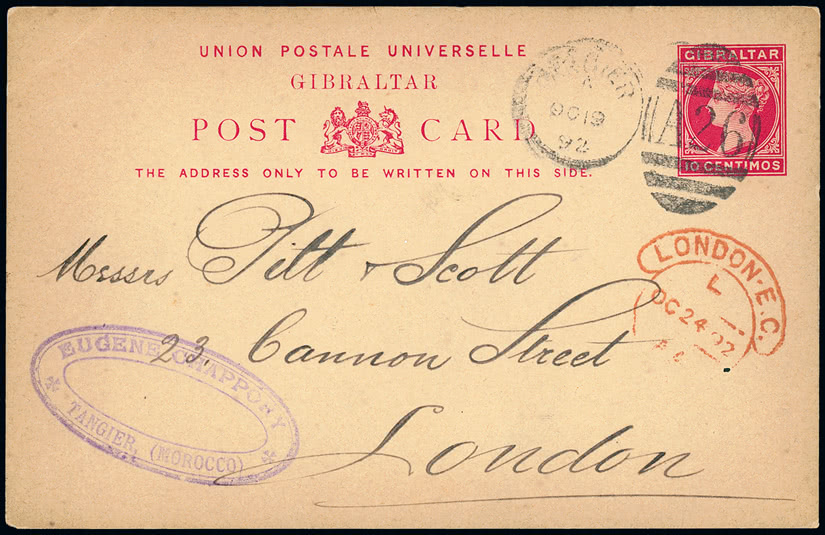 UNION POSTALE UNIVERSELLE
GIBRALTAR
POST CARD
THE ADDRESS ONLY TO BE WRITTEN ON THIS SIDE.
TANGIER
A
OC 19
92
A26
GIBRALTAR
10 CENTIMOS
Messrs Pitt & Scott
23, Cannon Street
London
LONDON-E.C.
L
OC 24 92
EUGENE CHAPPORY
TANGIER, (MOROCCO)